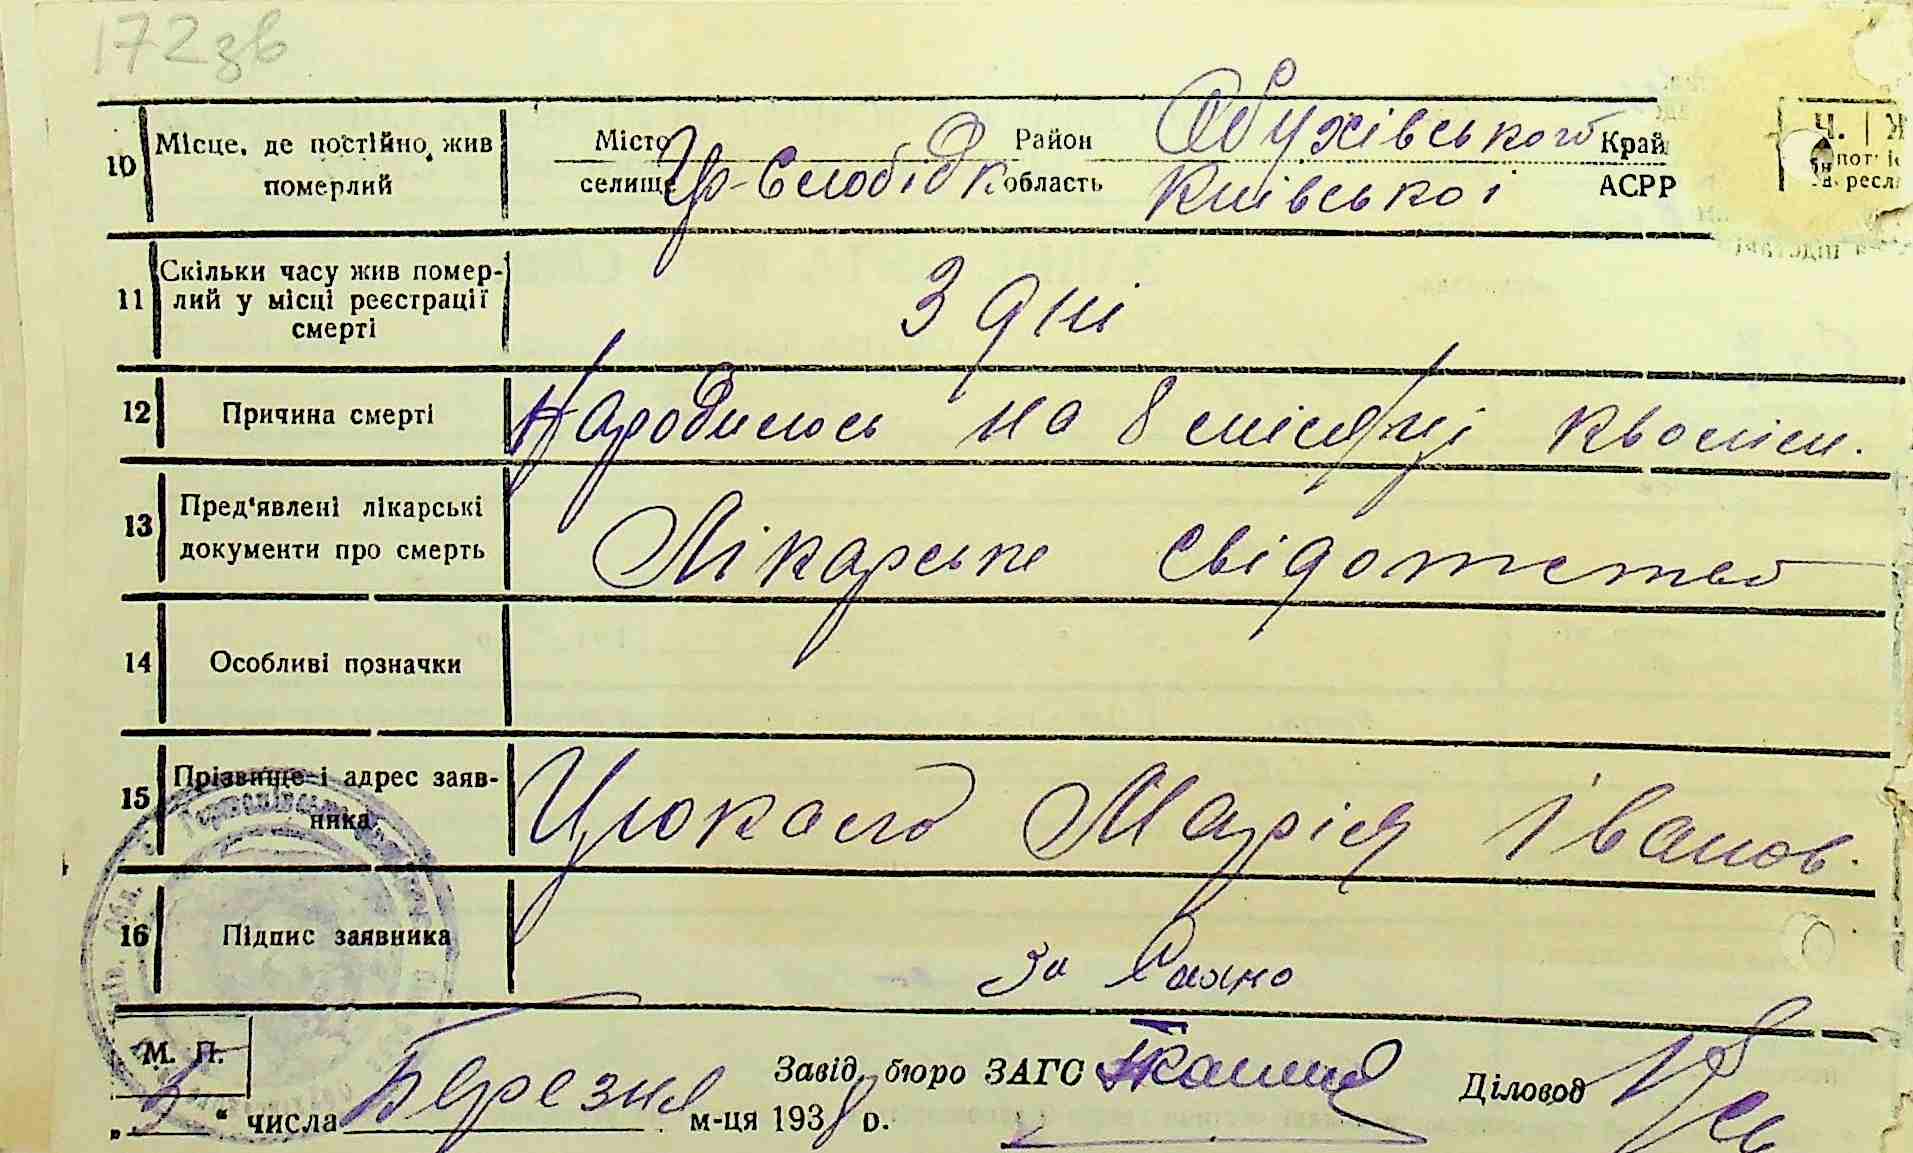 172зв
10 Місце, де постійно жив померлий
Місто селище Цр-Слобідк Район Обухівського Край
область Київської АСРР
Ч. | Ж
11 Скільки часу жив померлий у місці реєстрації смерті 3 дні
12 Причина смерті Народилось на 8 місяці
13 Пред'явлені лікарські документи про смерть Лікарське свідотство
14 Особливі позначки
15 Прізвище і адрес заявника Марія Іванов.
16 Підпис заявника За
М. П.
Завід. бюро ЗАГС Діловод
„3“ числа Березня м-ця 1938 р.